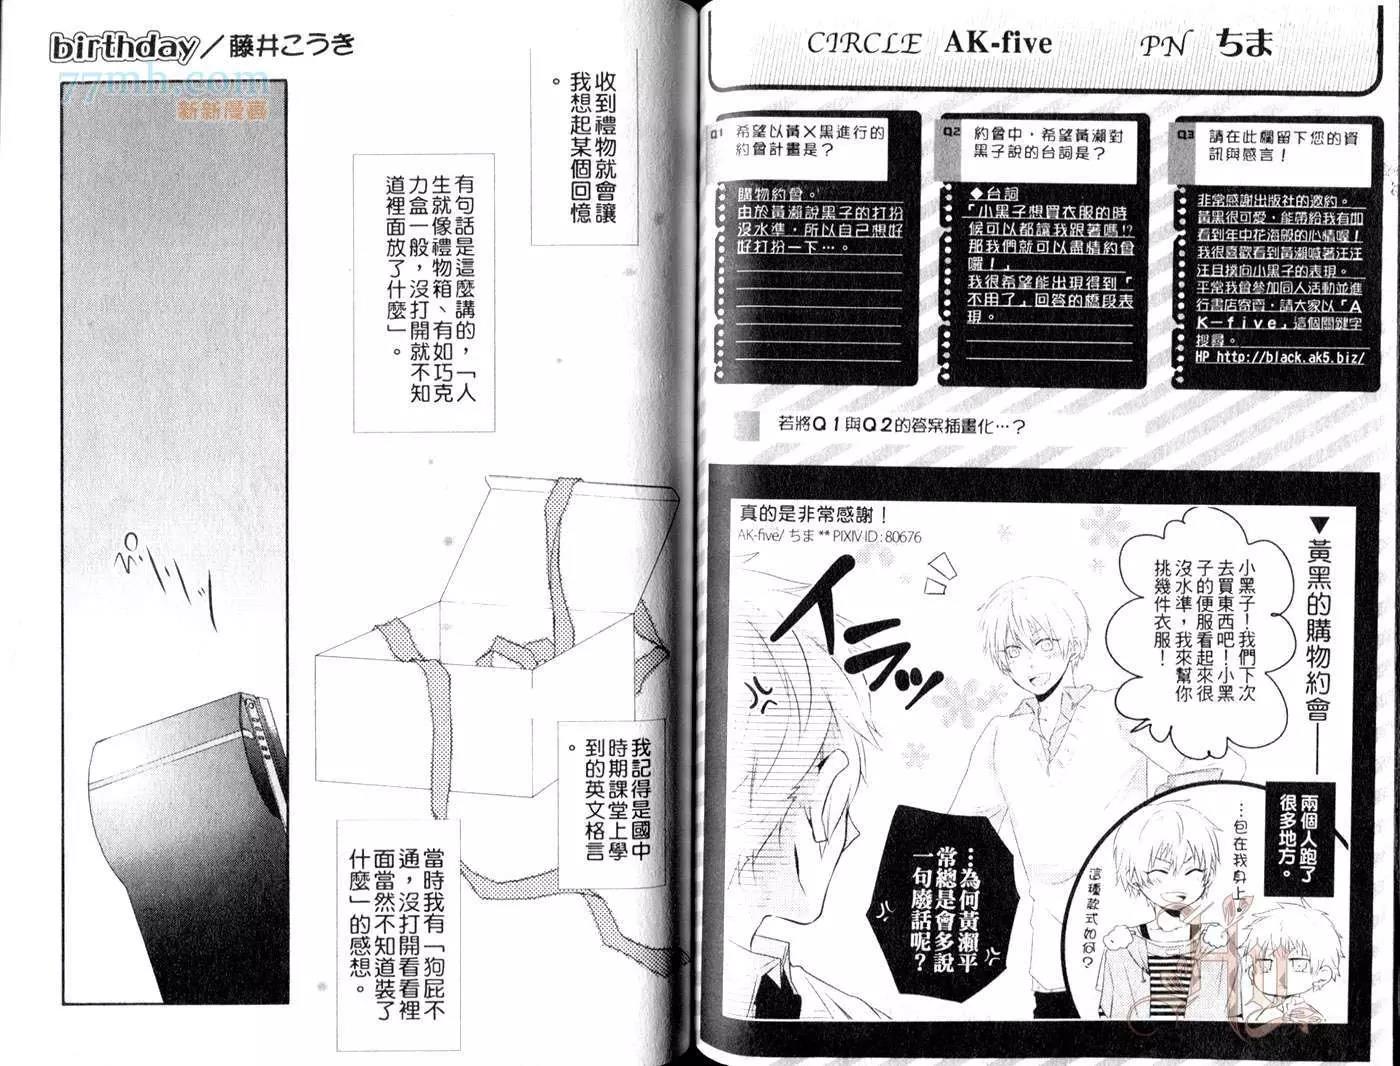 CIRCLE AK-five PN ちま
Q1 希望以黃×黑進行的
約會計畫是？
購物約會。
由於黃瀨說黑子的打扮
沒水準，所以自己想好
好打扮一下…。
Q2 約會中，希望黃瀨對
黑子說的台詞是？
◆台詞
「小黑子想買衣服的時
候可以都讓我跟著嗎!?
那我們就可以盡情約會
囉！」
我很希望能出現得到「
不用了」回答的橋段表
現。
Q3 請在此欄留下您的資
訊與感言！
非常感謝出版社的邀約。
黃黑很可愛，能帶給我有如
看到年中花海般的心情喔！
我很喜歡看到黃瀨喊著汪汪
汪且撲向小黑子的表現。
平常我會參加同人活動並進
行書店寄賣，請大家以「A
K－five」這個關鍵字
搜尋。
HP http://black.ak5.biz/
若將Q1與Q2的答案插畫化…？
▼黃黑的購物約會——
真的是非常感謝！
AK-five/ ちま ** PIXIV ID : 80676
小黑子！我們下次
去買東西吧！小黑
子的便服看起來很
沒水準，我來幫你
挑幾件衣服！
イラッ
…為何黃瀨平
常總是會多說
一句廢話呢？
兩個人跑了
很多地方。
…包在我身上。
這種款式如何？
birthday／藤井こうき
77mh.com
新新漫畫
收到禮物就會讓
我想起某個回憶
。
有句話是這麼講的，「人
生就像禮物箱、有如巧克
力盒一般，沒打開就不知
道裡面放了什麼」。
我記得是國中
時期課堂上學
到的英文格言
。
當時我有「狗屁不
通，沒打開看看裡
面當然不知道裝了
什麼」的感想。